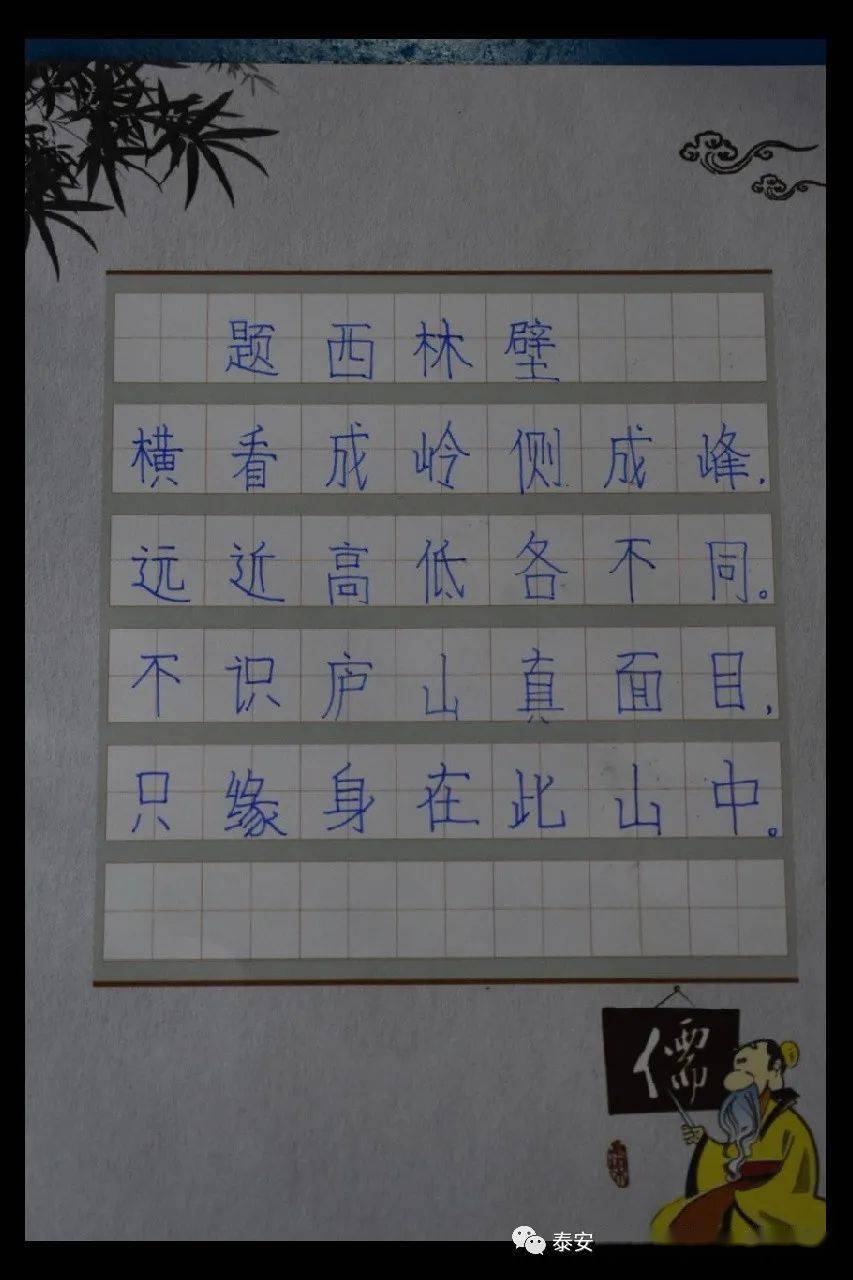 题西林壁
横看成岭侧成峰.
远近高低各不同。
不识庐山真面目,
只缘身在此山中。
儒
泰安